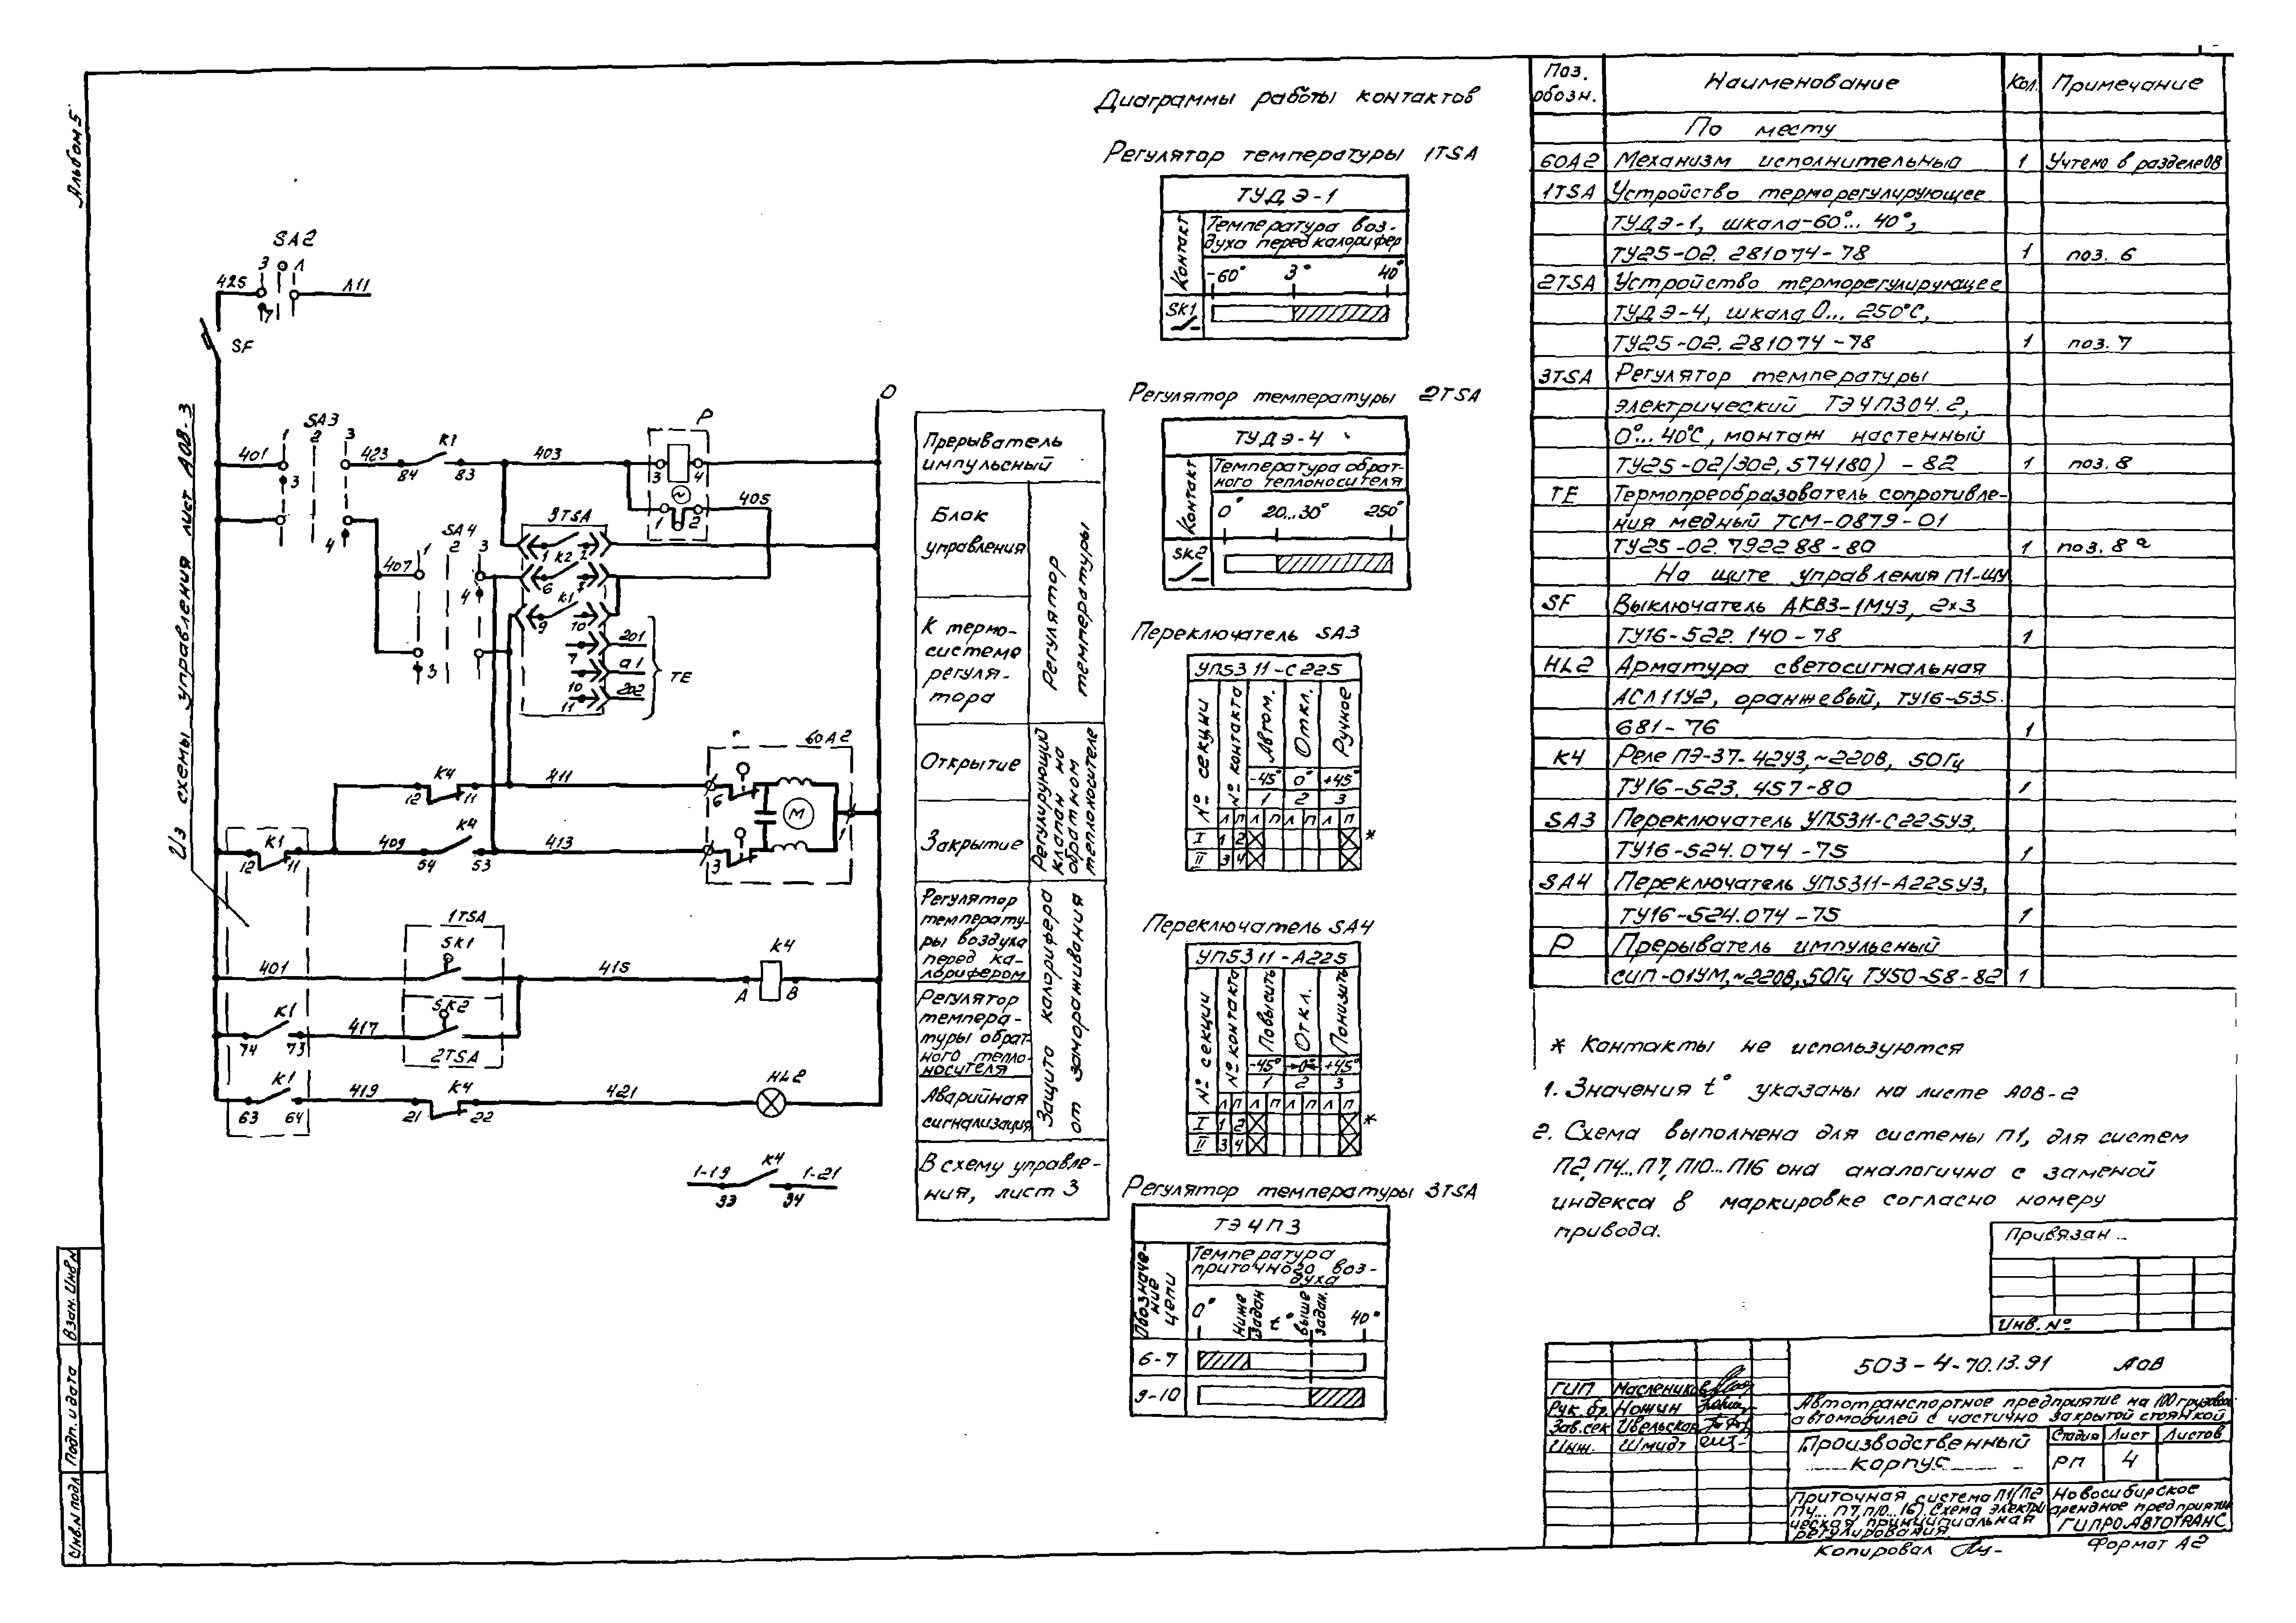 Альбом 5
SA2
3 Л
425
Л11
7
SF
Из схемы управления лист АОВ-3
SA3
1 2 3
401
423
К1
84 83
403
Р
3 4
1 2
405
0
3
4
SA4
1 2 3
407
4
3
3TSA
1 К2 2
6 7
К1
9 10
7
201
а1
10
202
11
ТЕ
К4
12 11
411
60А2
6
М
1
К1
12 11
409
К4
54 53
413
3
1TSA
SK1
401
415
К4
А В
К1
74 73
417
SK2
2TSA
К1
63 64
419
К4
21 22
421
HL2
1-19
К4
1-21
93 94
Прерыватель
импульсный
Блок
управления
К термо-
системе
регуля-
тора
Регулятор
температуры
Открытие
Закрытие
Регулирующий
клапан на
обратном
теплоносителе
Регулятор
температу-
ры воздуха
перед ка-
лорифером
Регулятор
темпера-
туры обрат-
ного тепло-
носителя
Аварийная
сигнализация
Защита калорифера
от замораживания
В схему управле-
ния, лист 3
Диаграммы работы контактов
Регулятор температуры 1TSA
ТУДЭ-1
Контакт
Температура воз-
духа перед калорифер
-60° 3° 40°
SK1
Регулятор температуры 2TSA
ТУДЭ-4
Контакт
Температура обрат-
ного теплоносителя
0° 20...30° 250°
SK2
Переключатель SA3
УП5311-С225
№ секции
№ контакта
Автом.
Откл.
Ручное
-45° 0° +45°
1 2 3
Л П Л П Л П Л П
I 1 2 *
II 3 4
Переключатель SA4
УП5311-А225
№ секции
№ контакта
Повысить
Откл.
Понизить
-45° 0° +45°
1 2 3
Л П Л П Л П Л П
I 1 2 *
II 3 4
Регулятор температуры 3TSA
ТЭ4П3
Обозначе-
ние
цепи
Температура
приточного воз-
духа
0°
Ниже
задан
t°
выше
задан.
40°
6-7
9-10
Поз.
обозн.
Наименование
Кол.
Примечание
По месту
60А2 Механизм исполнительный 1 Учтено в разделе ОВ
1TSA Устройство терморегулирующее
ТУДЭ-1, шкала-60°... 40°,
ТУ25-02. 281074-78 1 поз. 6
2TSA Устройство терморегулирующее
ТУДЭ-4, шкала 0... 250°С,
ТУ25-02. 281074-78 1 поз. 7
3TSA Регулятор температуры
электрический ТЭ4П304.2,
0°... 40°С, монтаж настенный
ТУ25-02/302.574180) - 82 1 поз. 8
ТЕ Термопреобразователь сопротивле-
ния медный ТСМ-0879-01
ТУ25-02. 792288-80 1 поз. 8а
На щите управления П1-ЩУ
SF Выключатель АК63-1МУ3, 2×3
ТУ16-522. 140-78 1
HL2 Арматура светосигнальная
АСЛ11У2, оранжевый, ТУ16-535.
681-76 1
К4 Реле ПЭ-37-42У3,~220В, 50Гц
ТУ16-523. 457-80 1
SA3 Переключатель УП5311-С225У3,
ТУ16-524.074-75 1
SA4 Переключатель УП5311-А225У3,
ТУ16-524.074-75 1
Р Прерыватель импульсный
СИП-01УМ,~220В,50Гц ТУ50-58-82 1
* Контакты не используются
1. Значения t° указаны на листе АОВ-2
2. Схема выполнена для системы П1, для систем
П2, П4...П7, П10...П16 она аналогична с заменой
индекса в маркировке согласно номеру
привода.
Привязан
Инв. №
503-4-70.13.91 АОВ
ГИП Маслеников
Рук. бр. Ножин
Зав.сек
Инж. Шмидт
Автотранспортное предприятие на 100 грузовых
автомобилей с частично закрытой стоянкой
Производственный
корпус
Стадия Лист Листов
РП 4
Приточная система П1(П2
П4...П7,П10...16). Схема электри
ческая принципиальная
регулирования
Новосибирское
арендное предприятие
ГИПРОАВТОТРАНС
Копировал
Формат А2
Взам. Инв.№
Подп. и дата
Инв.№ подл